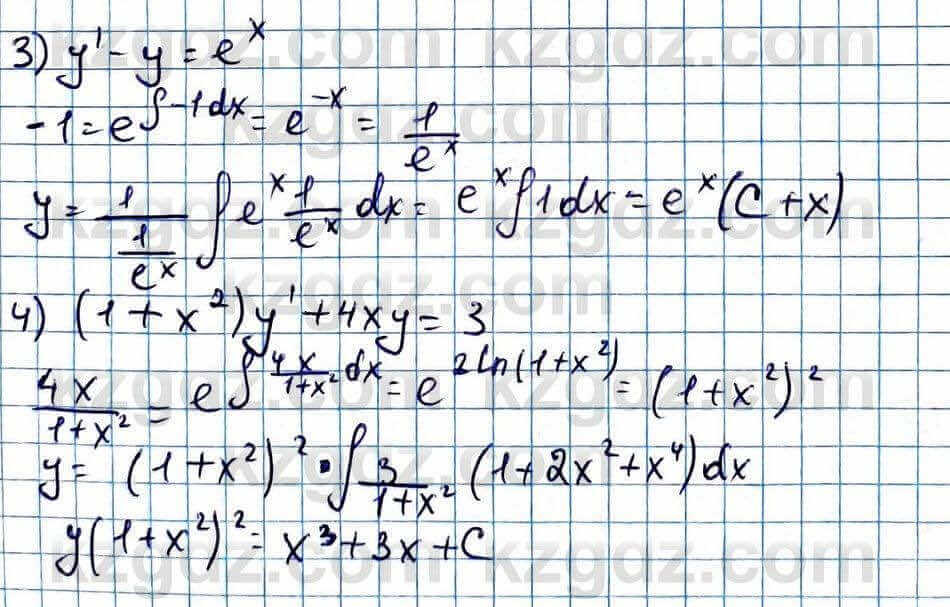 3) y' - y = e^x
-1 = e^{∫-1dx} = e^{-x} = 1/e^x
y = 1/(1/e^x) ∫ e^x 1/e^x dx = e^x ∫ 1dx = e^x (C + x)
4) (1 + x^2)y' + 4xy = 3
4x/(1+x^2) = e^{∫ 4x/(1+x^2) dx} = e^{2ln(1+x^2)} = (1+x^2)^2
y = (1+x^2)^2 · ∫ 3/(1+x^2) (1+2x^2+x^4)dx
y(1+x^2)^2 = x^3 + 3x + C
kzgdz.com